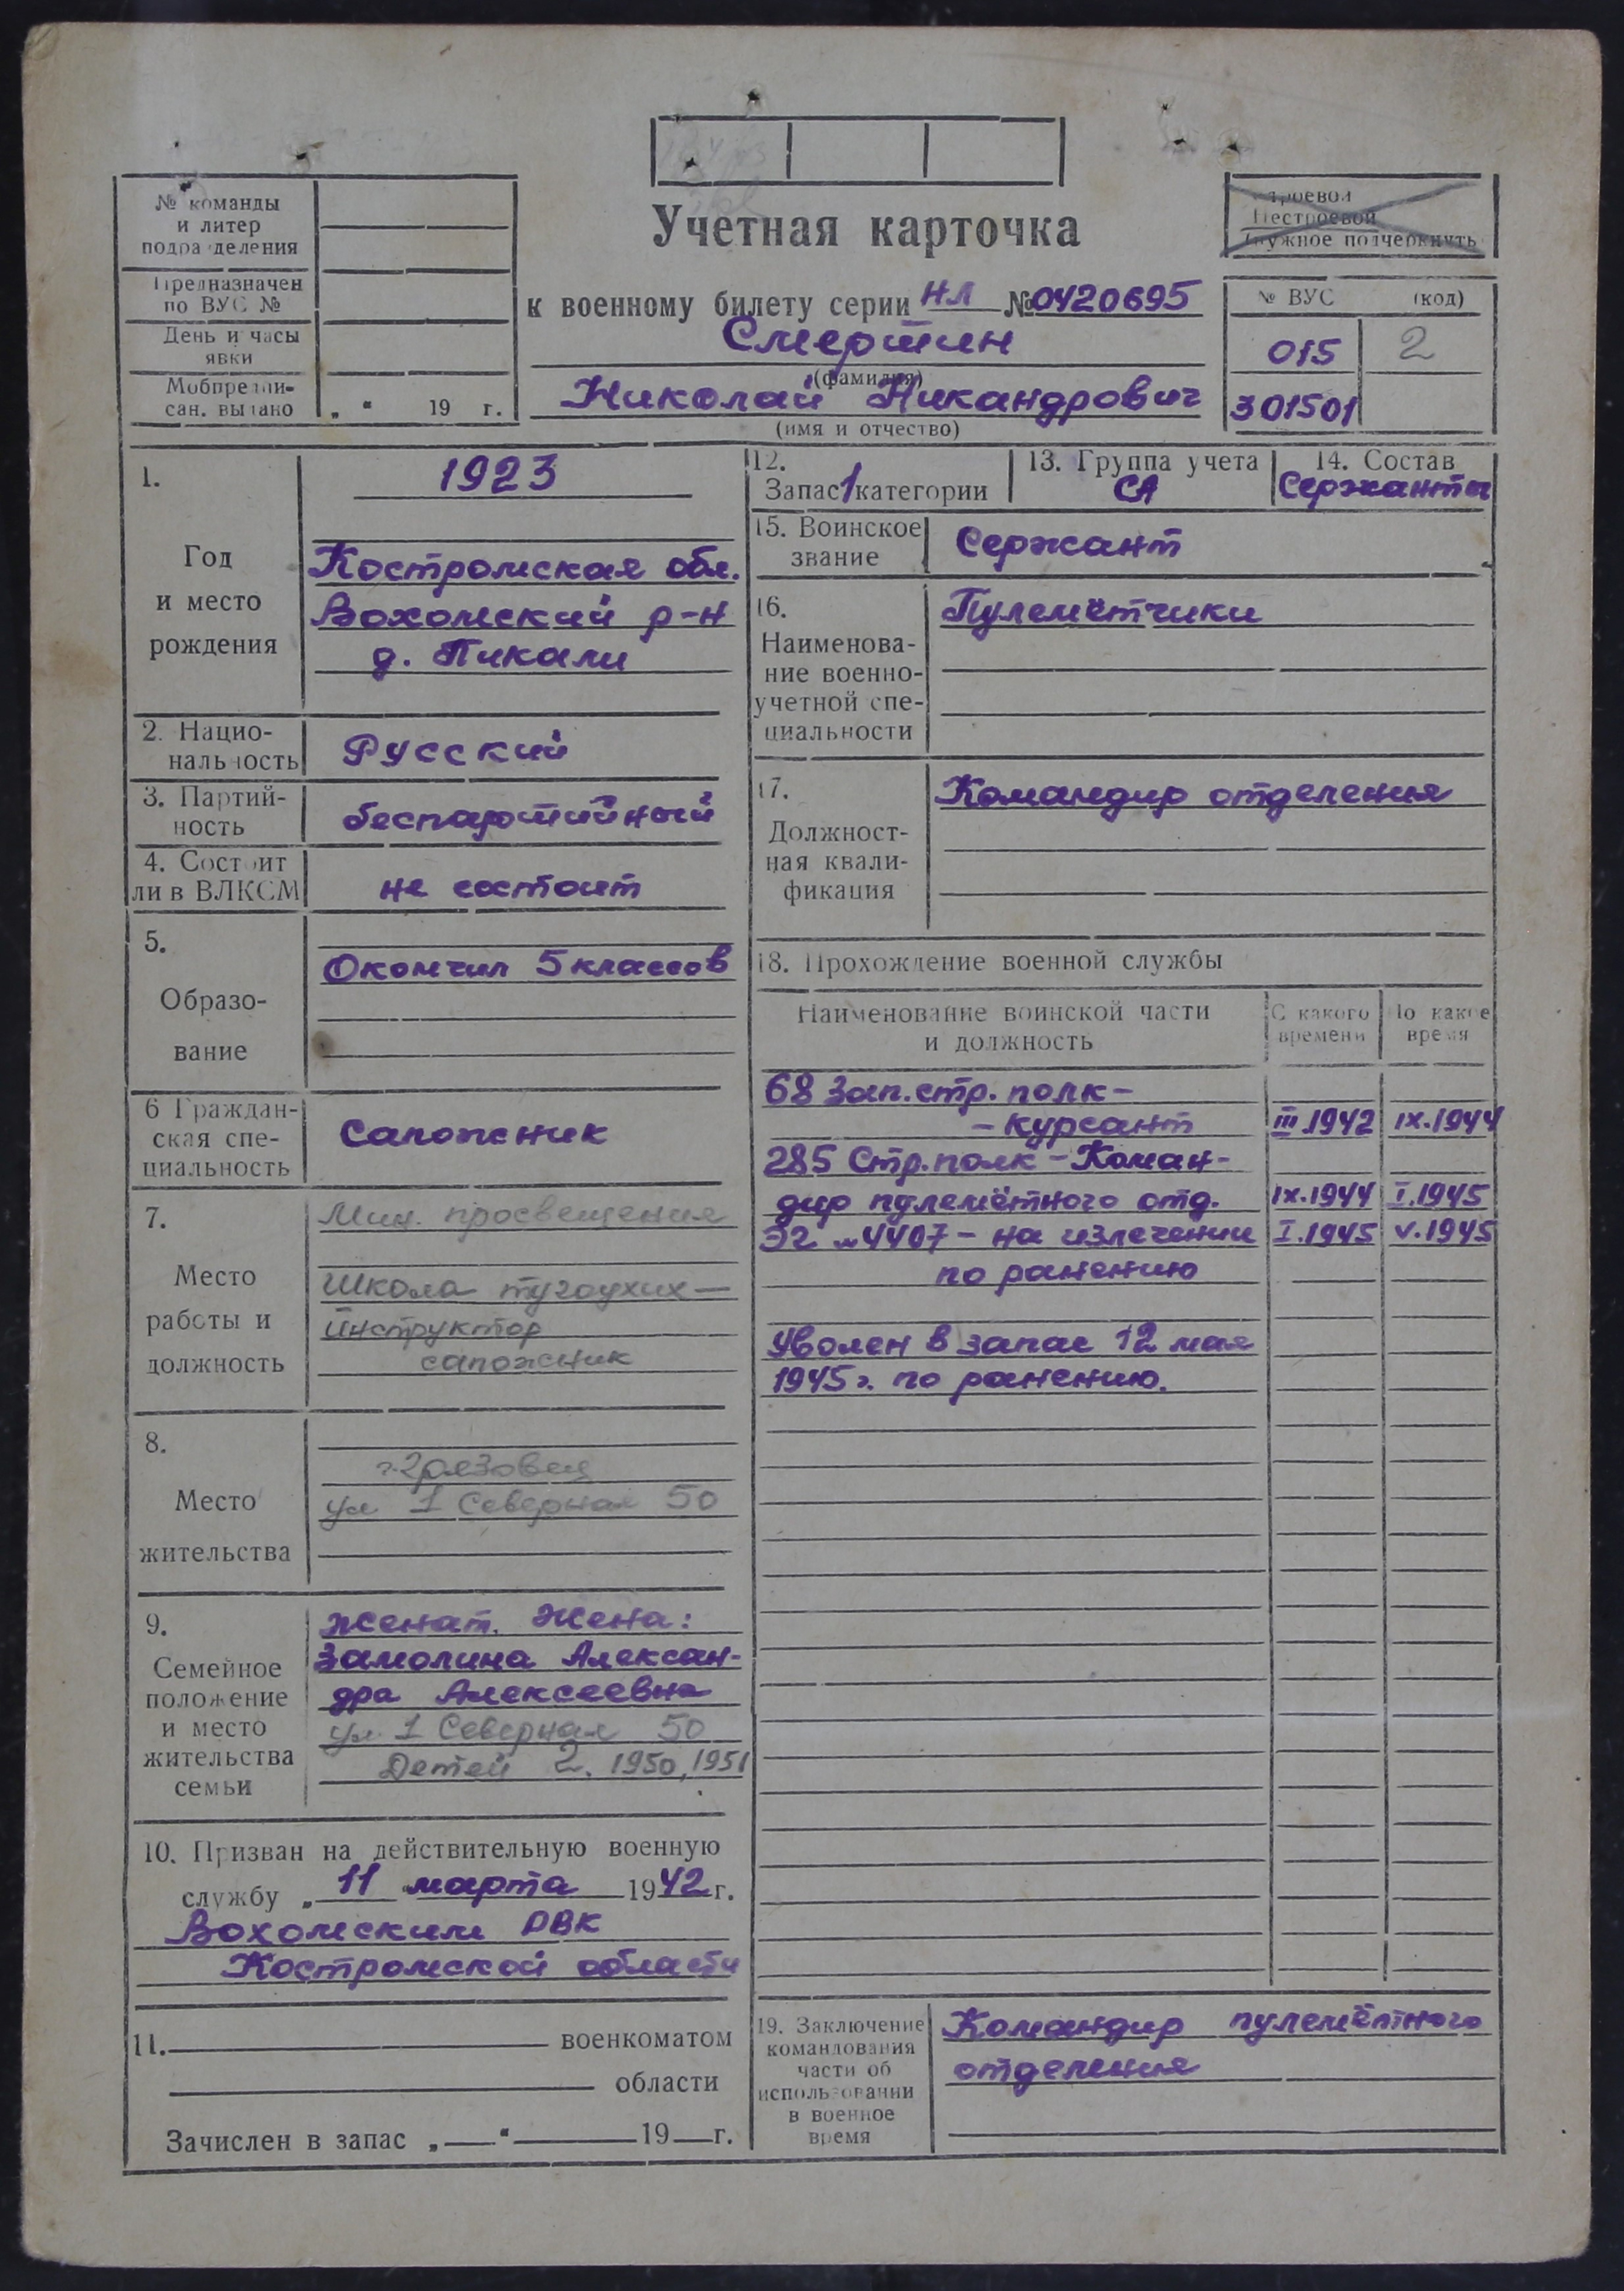 № команды
и литер
подразделения
Предназначен
по ВУС №
День и часы
явки
Мобпредпи-
сан. выдано „ “ 19 г.
Учетная карточка
к военному билету серии НЛ № 0420695
Смертин
(фамилия)
Николай Никандрович
(имя и отчество)
Строевой
Нестроевой
(нужное подчеркнуть)
№ ВУС (код)
015 2
301501
1. 1923
Год
и место
рождения
Костромская обл.
Вохомский р-н
д. Пикали
2. Нацио-
нальность
Русский
3. Партий-
ность
беспартийный
4. Состоит
ли в ВЛКСМ
не состоит
5.
Образо-
вание
Окончил 5 классов
6 Граждан-
ская спе-
циальность
Сапожник
7.
Место
работы и
должность
Мин. просвещения
Школа тугоухих —
инструктор
сапожник
8.
Место
жительства
г. Грязовец
ул 1 Северная 50
9.
Семейное
положение
и место
жительства
семьи
Женат. Жена:
Замолина Алексан-
дра Алексеевна
ул. 1 Северная 50
Детей 2. 1950, 1951
10. Призван на действительную военную
службу „ 11 марта 1942 г.
Вохомским РВК
Костромской области
11. военкоматом
области
Зачислен в запас „ “ 19 г.
12.
Запас 1 категории
13. Группа учета
СА
14. Состав
Сержанты
15. Воинское
звание
Сержант
16.
Наименова-
ние военно-
учетной спе-
циальности
Пулемётчики
17.
Должност-
ная квали-
фикация
Командир отделения
18. Прохождение военной службы
Наименование воинской части
и должность
С какого
времени
По какое
время
68 Зап. стр. полк –
– курсант III.1942 IX.1944
285 Стр. полк – Коман-
дир пулемётного отд. IX.1944 I.1945
ЭГ №4407 – на излечении I.1945 V.1945
по ранению
Уволен в запас 12 мая
1945 г. по ранению.
19. Заключение
командования
части об
использовании
в военное
время
Командир пулемётного
отделения